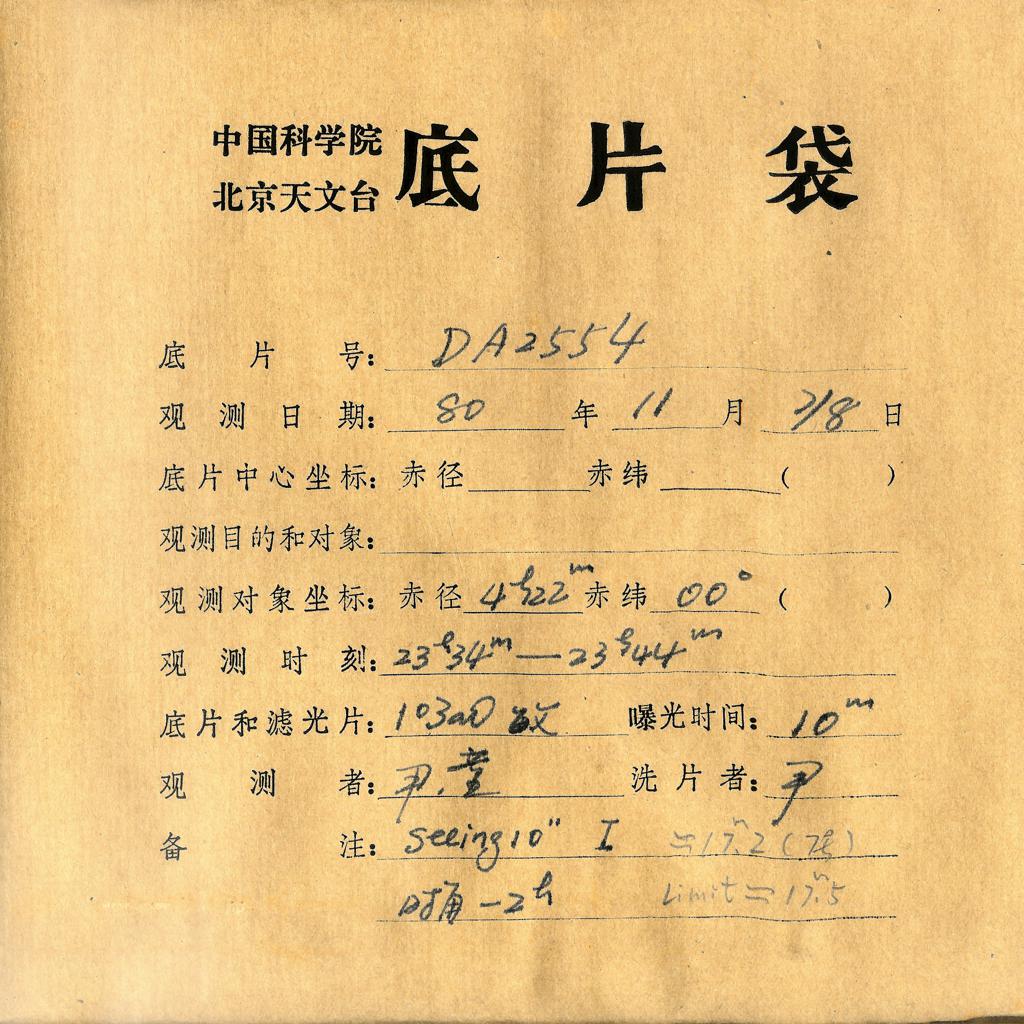 中国科学院
北京天文台
底片袋
底片号: DA2554
观测日期: 80年11月7/8日
底片中心坐标: 赤径 赤纬 ( )
观测目的和对象:
观测对象坐标: 赤径 4h22m 赤纬 00° ( )
观测时刻: 23h34m—23h44m
底片和滤光片: 103aO 曝光时间: 10m
观测者: 尹. 洗片者: 尹
备注: seeing10" I =17m.2 ( )
时角 -2h Limit = 17m.5